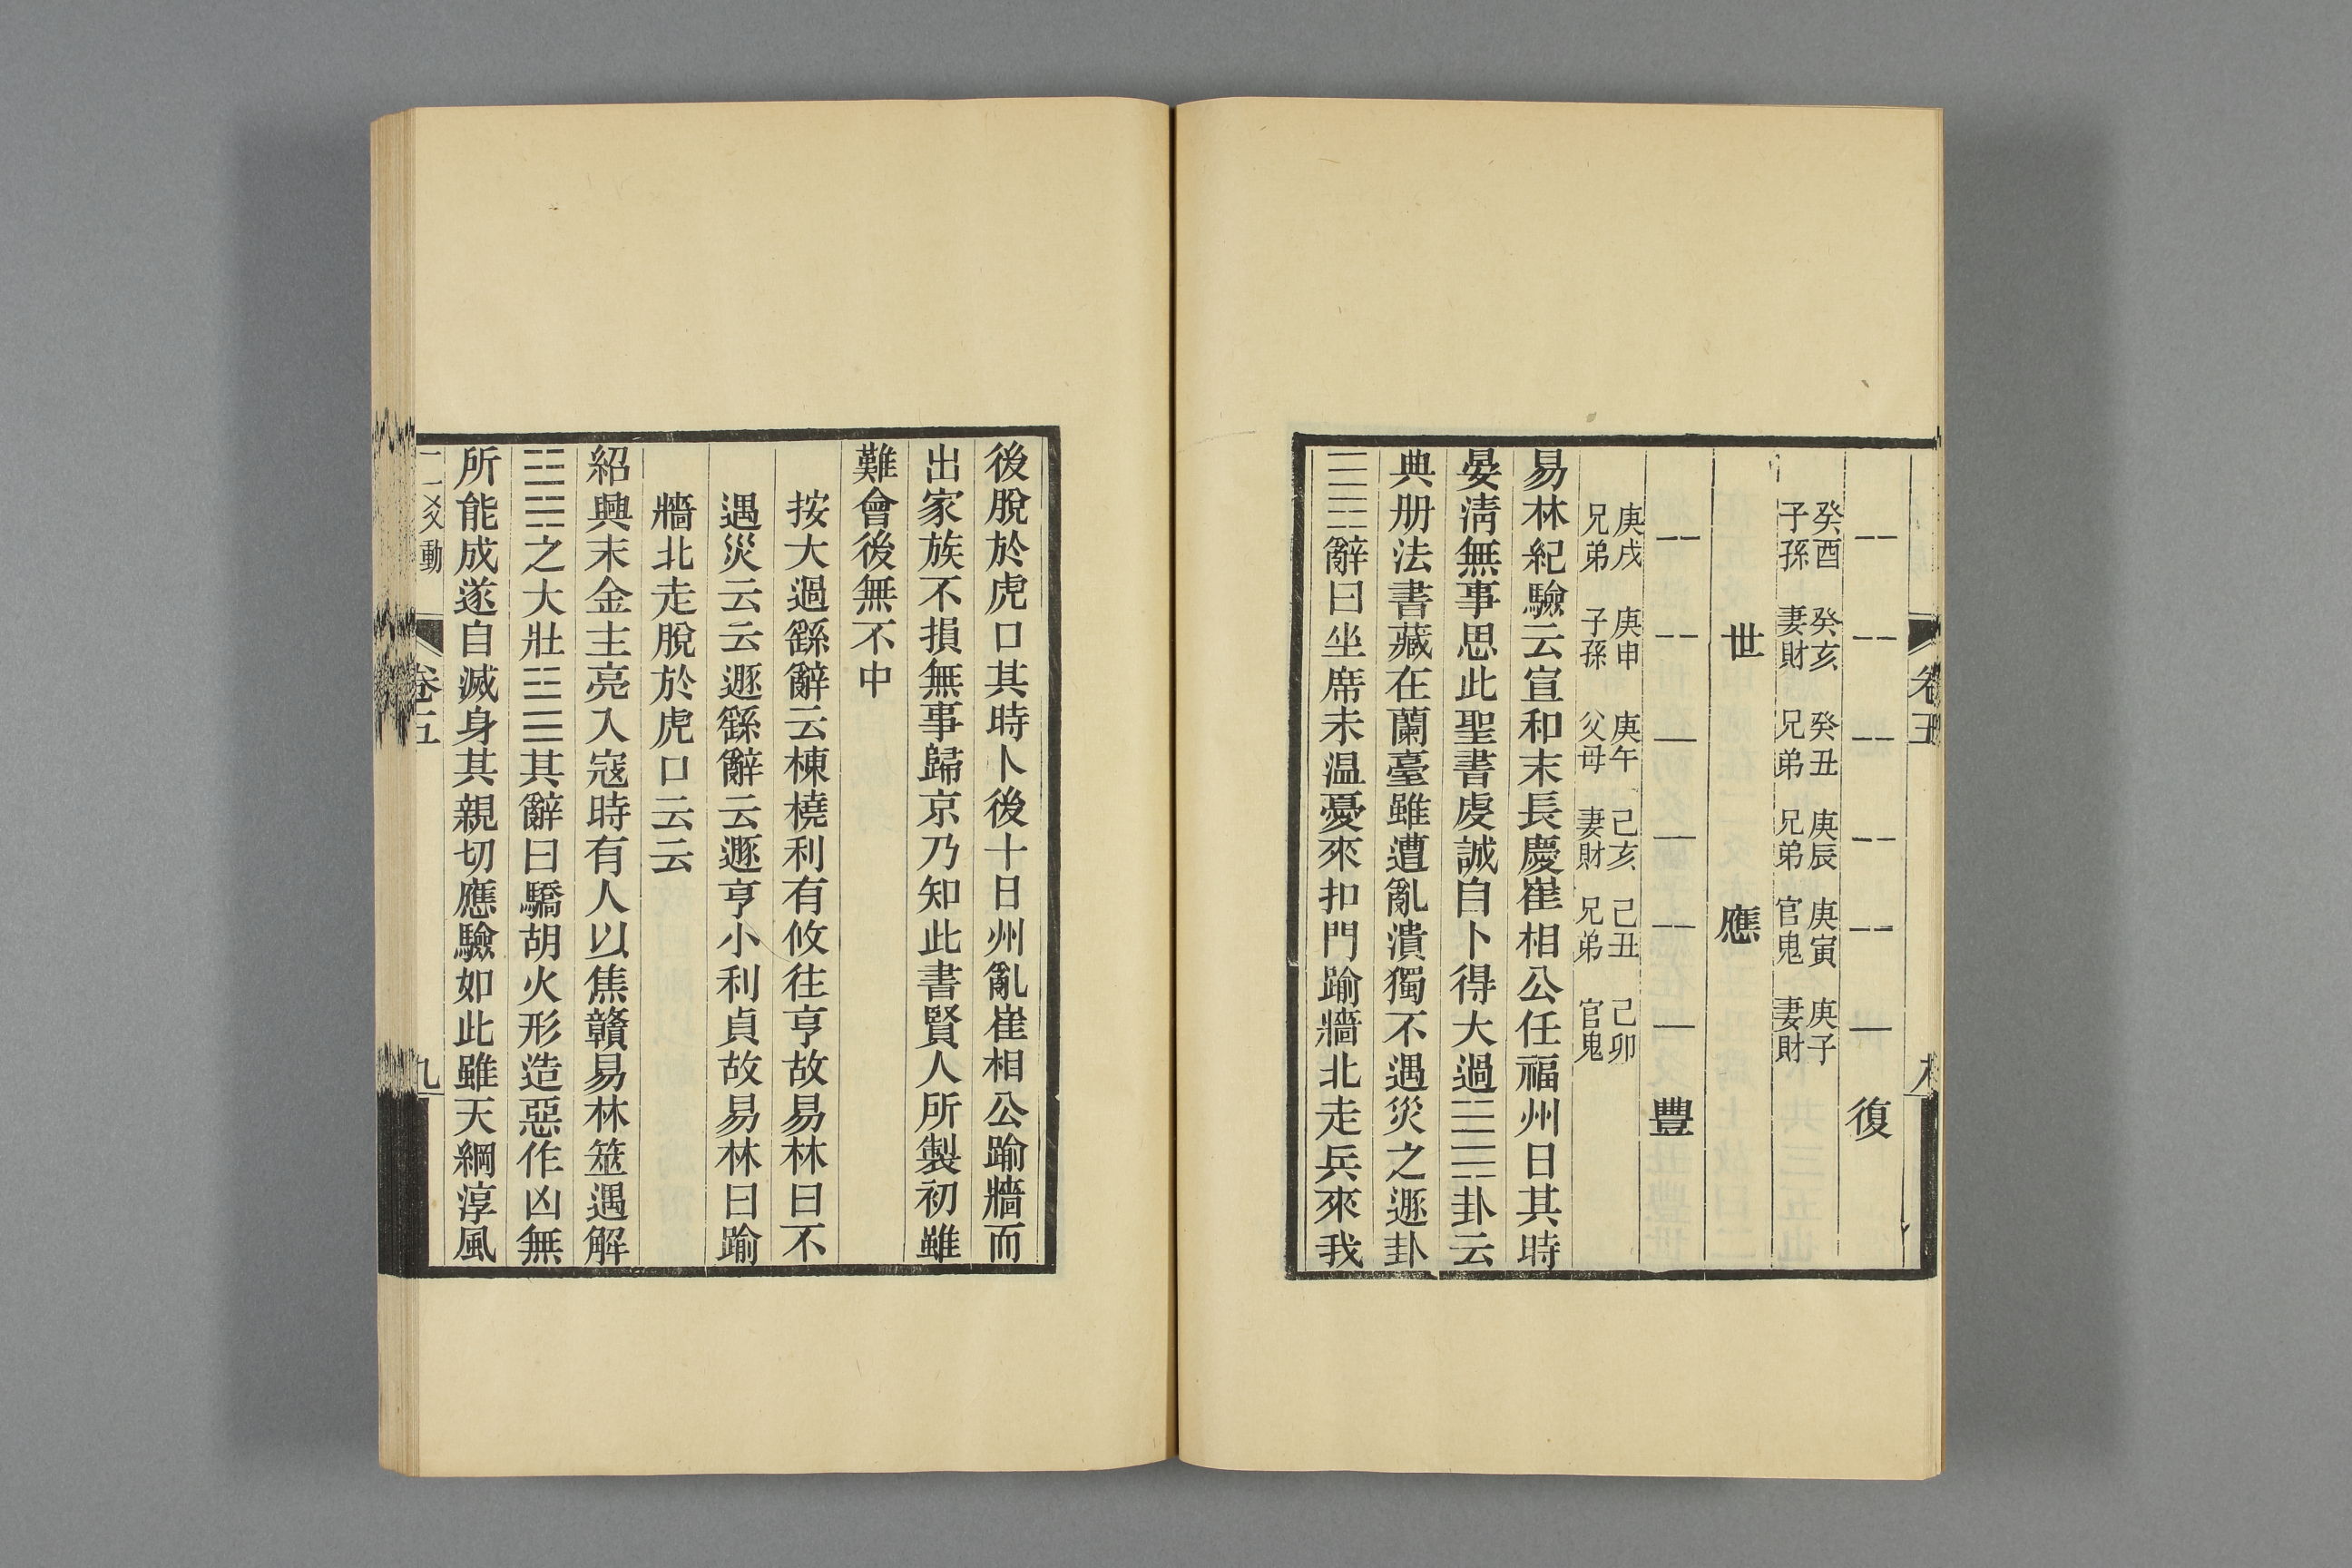 卷五
復
癸酉 癸亥 癸丑 庚辰 庚寅 庚子
子孫 妻財 兄弟 兄弟 官鬼 妻財
世 應
豐
庚戌 庚申 庚午 己亥 己丑 己卯
兄弟 子孫 父母 妻財 兄弟 官鬼
易林紀驗云宣和末長慶崔相公任福州日其時
晏淸無事思此聖書虔誠自卜得大過卦云
典册法書藏在蘭臺雖遭亂潰獨不遇災之遯卦
辭曰坐席未温憂來扣門踰牆北走兵來我
後脫於虎口其時卜後十日州亂崔相公踰牆而
出家族不損無事歸京乃知此書賢人所製初雖
難會後無不中
按大過繇辭云棟橈利有攸往亨故易林曰不
遇災云云遯繇辭云遯亨小利貞故易林曰踰
牆北走脫於虎口云云
紹興末金主亮入寇時有人以焦贛易林筮遇解
之大壯其辭曰驕胡火形造惡作凶無
所能成遂自滅身其親切應驗如此雖天綱淳風
二爻動 卷五 九